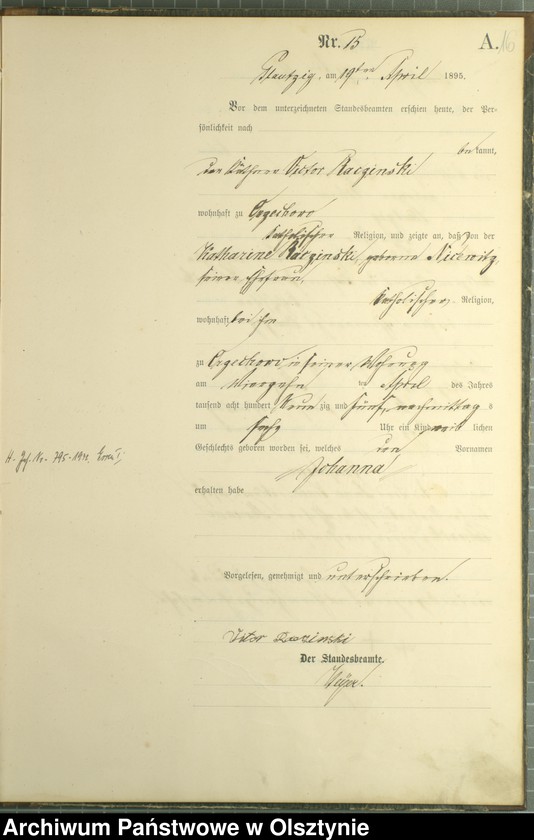 Nr. 15
A. 16
Plautzig, am 19ten April 1895.
Vor dem unterzeichneten Standesbeamten erschien heute, der Per-
sönlichkeit nach
bekannt,
der Käthner Victor Raczinski
wohnhaft zu Orzechowo
katholischer Religion, und zeigte an, daß von der
Katharine Raczinski, geborene Nicewitz,
seiner Ehefrau,
katholischer Religion,
wohnhaft bei ihm
zu Orzechowo, in seiner Wohnung
am vierzehn ten April des Jahres
tausend acht hundert neunzig und fünf, nachmittags
um sechs Uhr ein Kind weiblichen
Geschlechts geboren worden sei, welches Vornamen
Johanna
erhalten habe
Vorgelesen, genehmigt und unterschrieben.
Victor Raczinski
Der Standesbeamte.
Archiwum Państwowe w Olsztynie